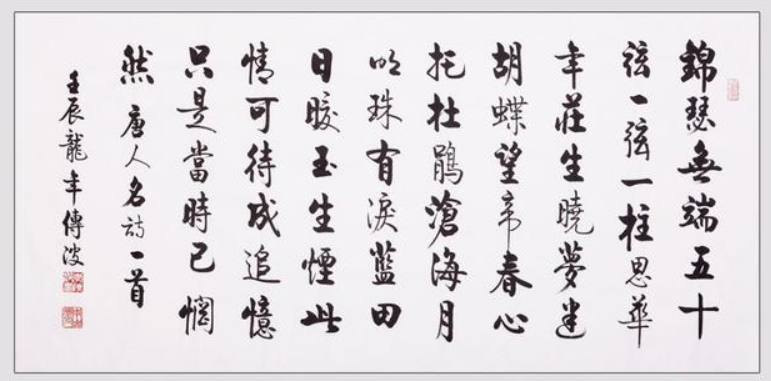 錦瑟無端五十
弦一弦一柱思華
年莊生曉夢迷
胡蝶望帝春心
托杜鵑滄海月
明珠有淚藍田
日暖玉生煙此
情可待成追憶
只是當時已惘
然 唐人名詩一首
壬辰龍年傳波